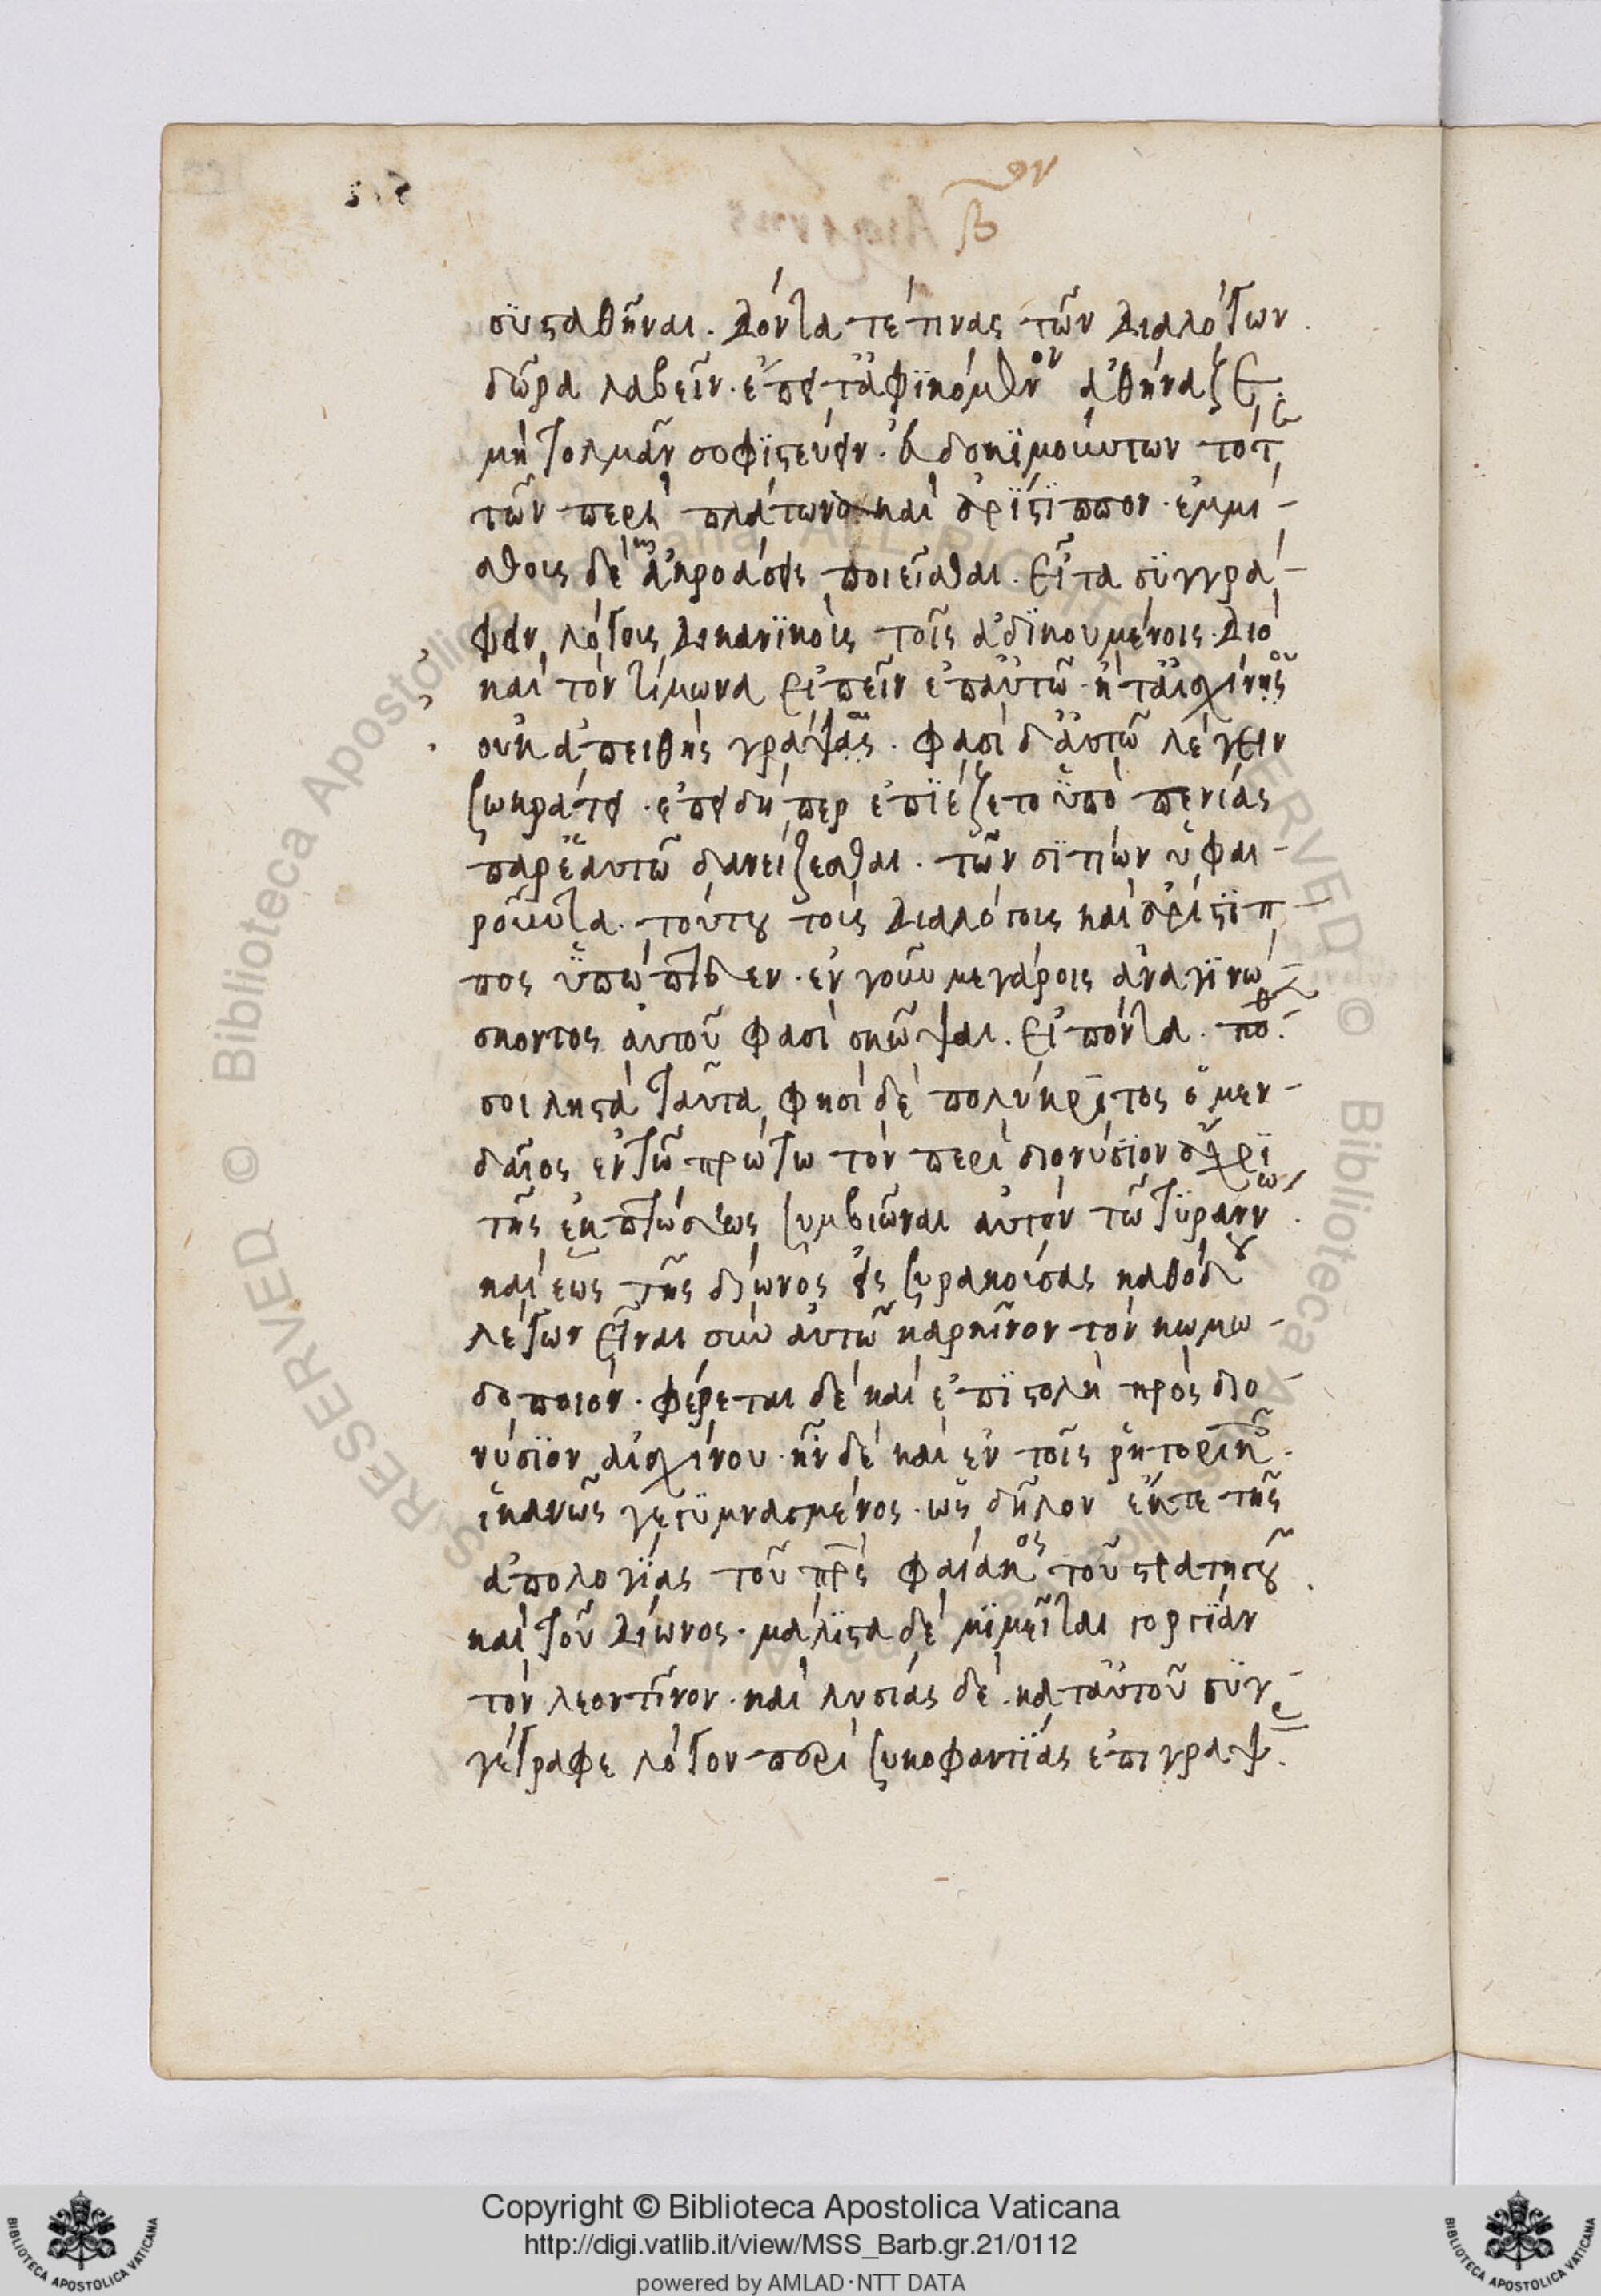 συσταθῆναι. δόντα τέ τινας τῶν διαλόγων
δῶρα λαβεῖν. ἔπειτ' ἀφϊκόμενον ἀθήναζε
μὴ τολμᾶν σοφϊστεύειν. εὐδοκϊμούντων τότε
τῶν περὶ πλάτωνα καὶ ἀρίστϊππον. ἐμμί-
σθους δὲ ἀκροάσεις ποιεῖσθαι. εἶτα συγγρά-
φειν λόγους δικανϊκοὺς τοῖς ἀδϊκουμένοις. διὸ
καὶ τὸν τίμωνα εἰπεῖν ἐπ' αὐτῶ. ἤ τ' αἰσχίνου
οὐκ ἀπειθὴς γράψαι. φασὶ δ' αὐτῶ λέγειν
σωκράτει. ἐπειδήπερ ἐπϊέζετο ὑπὸ πενίας
παρ' ἑαυτῶ δανείζεσθαι. τῶν σϊτίων ὑφαι-
ροῦντα. τούτου τοὺς διαλόγους καὶ ἀρίστϊπ-
πος ὑπώπτευεν. ἐν γοῦν μεγάροις ἀναγϊνώ-
σκοντος αὐτοῦ φασὶ σκῶψαι. εἰπόντα. πόθεν
σοι ληστὰ ταῦτα, φησὶ δὲ πολύκρϊτος ὁ μεν-
δαῖος ἐν τῶ πρώτω τὸν περὶ διονύσϊον ἄχρϊ
τῆς ἐκπτώσεως συμβιῶναι αὐτὸν τῶ τϋράννω.
καὶ ἕως τῆς δίωνος εἰς συρακούσας καθόδου
λέγων εἶναι σὺν αὐτῶ καρκῖνον τὸν κωμω-
δοποιόν. φέρεται δὲ καὶ ἐπϊστολὴ πρὸς διο-
νύσϊον αἰσχίνου. ἦν δὲ καὶ ἐν τοῖς ῥητορικοῖς
ἱκανῶς γεγϋμνασμένος. ὡς δῆλον ἔκ τε τῆς
ἀπολογίας τοῦ πρς φαίακος τοῦ στρατηγοῦ
καὶ τοῦ δίωνος. μάλϊστα δὲ μϊμεῖται γοργϊαν
τὸν λεοντῖνον. καὶ λυσίας δὲ κατ' αὐτοῦ συγ-
γέγραφε λόγον περὶ συκοφαντίας ἐπιγράψ.
Copyright © Biblioteca Apostolica Vaticana
http://digi.vatlib.it/view/MSS_Barb.gr.21/0112
powered by AMLAD·NTT DATA